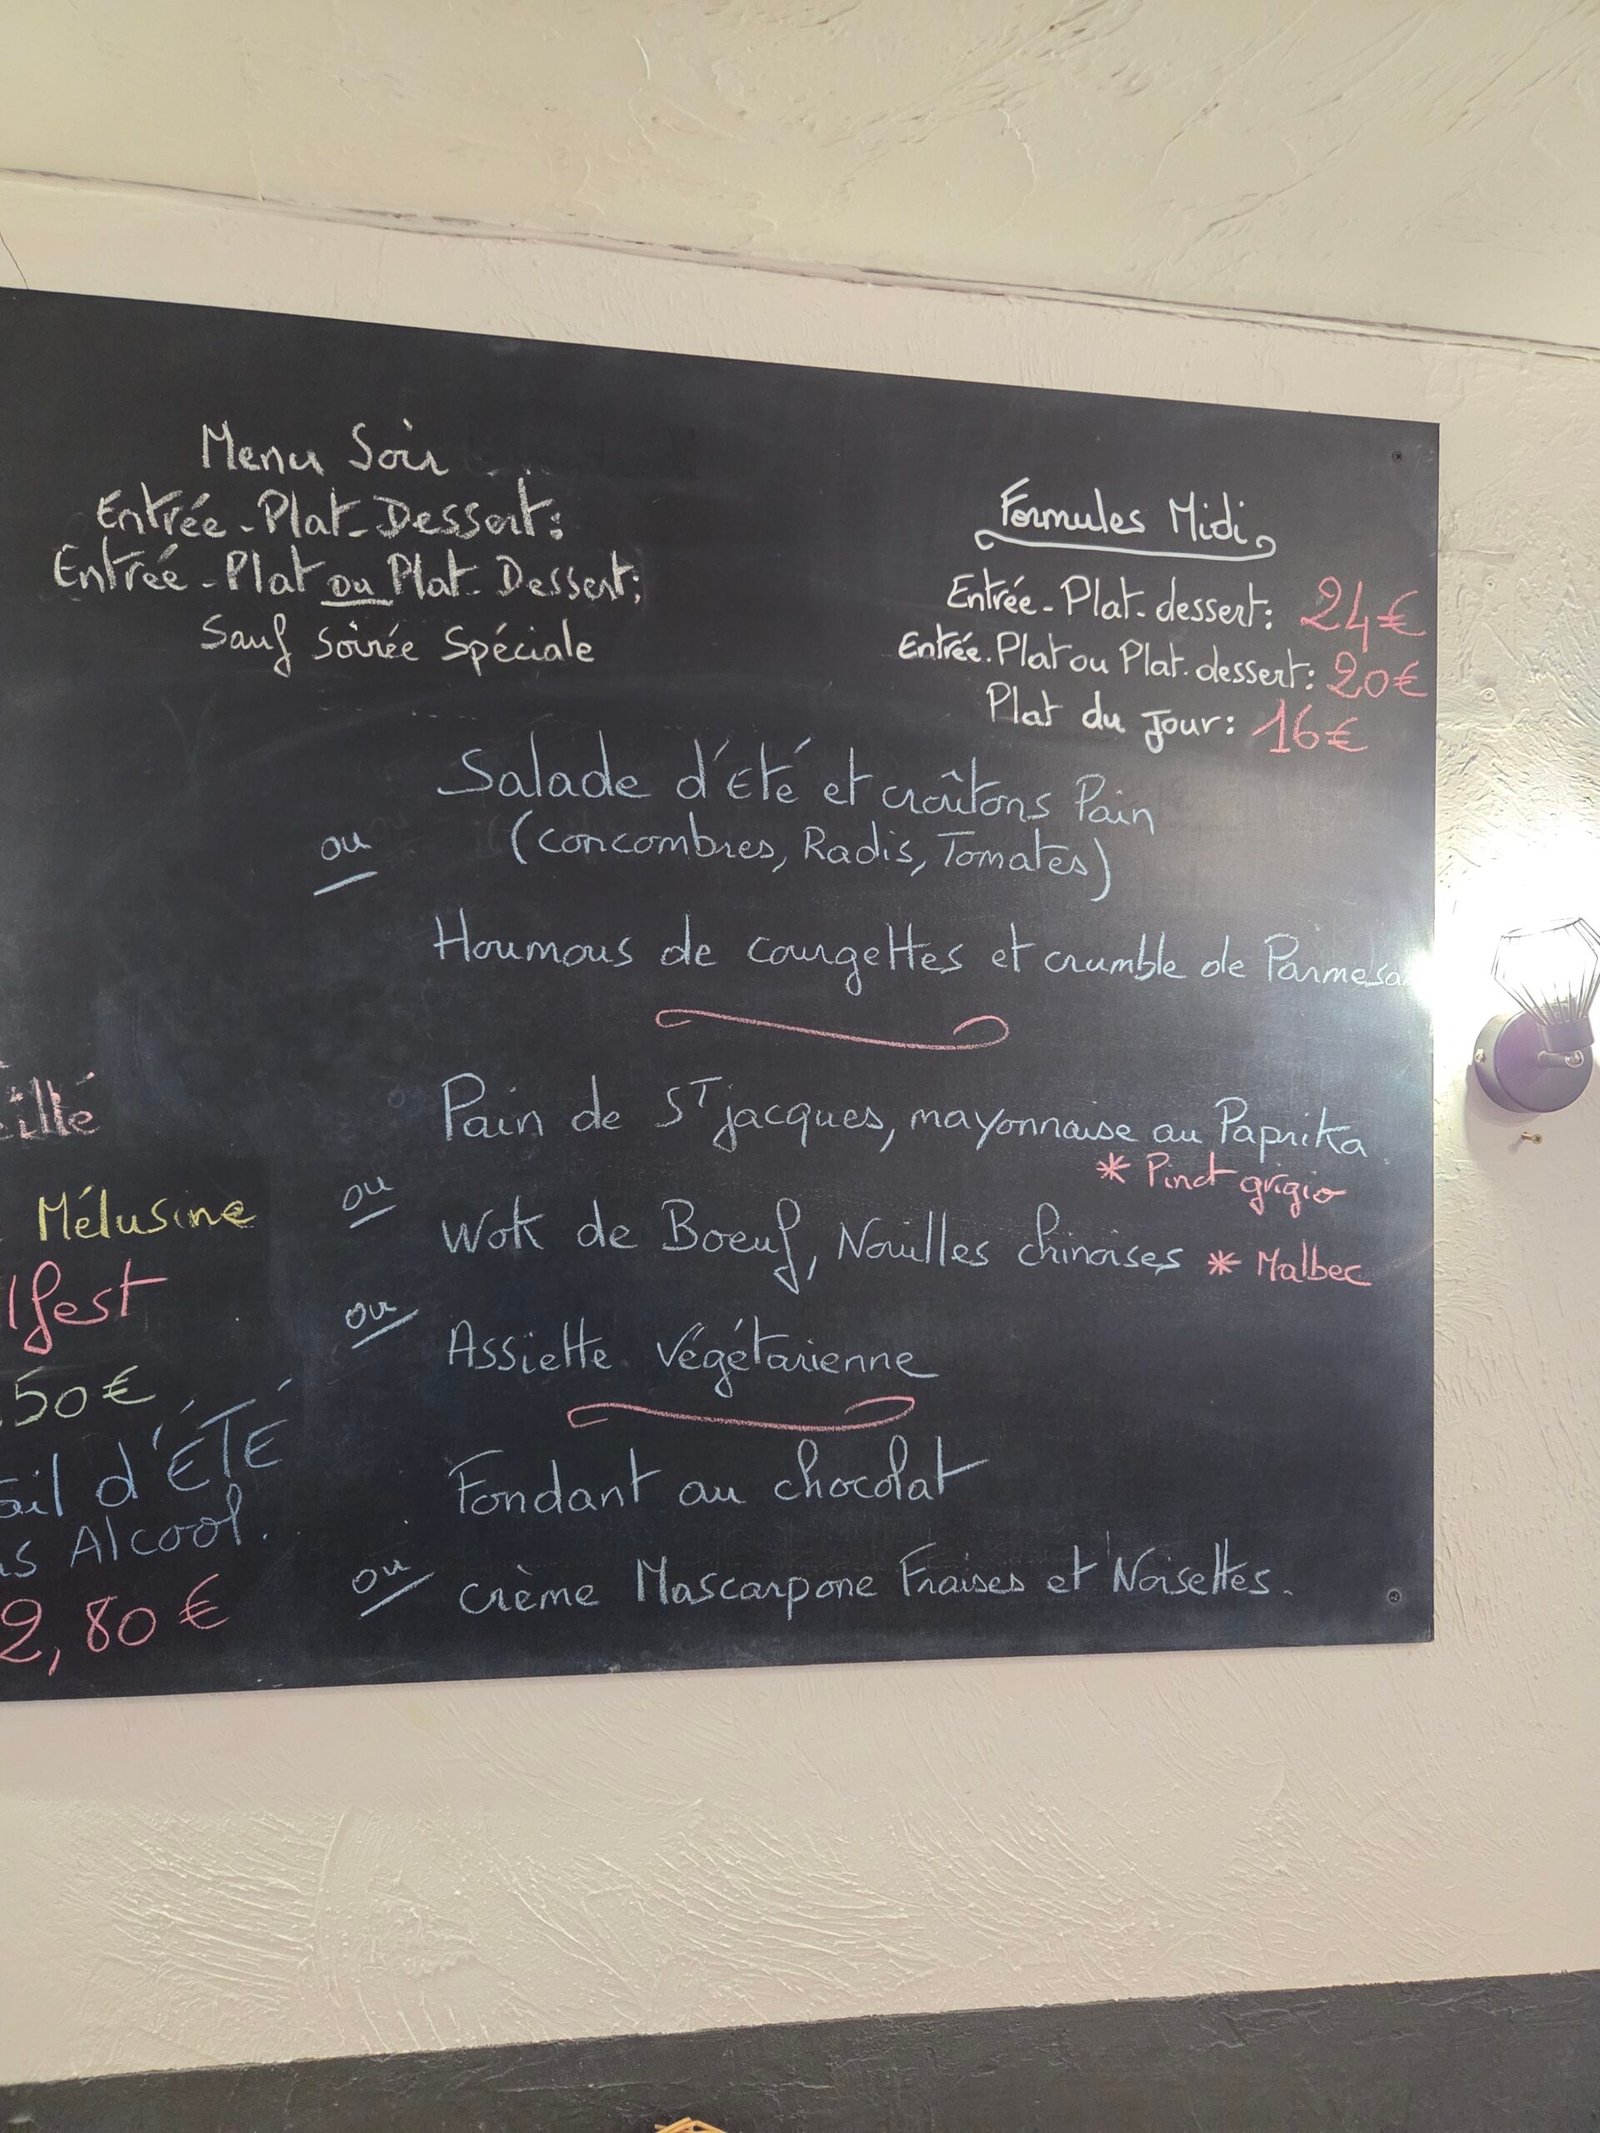 Menu Soir
Entrée - Plat - Dessert :
Entrée - Plat ou Plat - Dessert ;
Sauf Soirée Spéciale
Formules Midi
Entrée - Plat - dessert : 24€
Entrée - Plat ou Plat - dessert : 20€
Plat du Jour : 16€
Salade d'été et croûtons Pain
ou
(concombres, Radis, Tomates)
Houmous de courgettes et crumble de Parmesa
Pain de ST jacques, mayonnaise au Paprika
* Pinot grigio
ou
Wok de Boeuf, Nouilles chinoises * Malbec
ou
Assiette Végétarienne
Fondant au chocolat
ou
crème Mascarpone Fraises et Noisettes.
Mélusine
fest
50€
d'ÉTÉ
Alcool.
2,80€